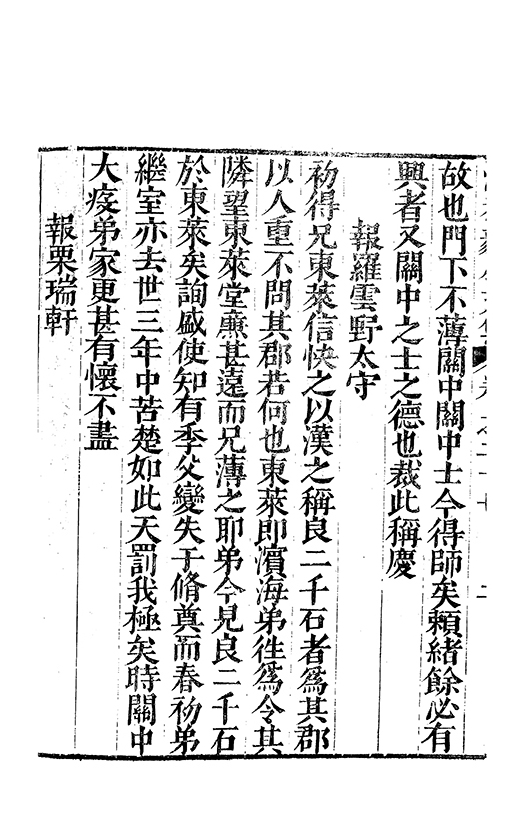 故也門下不薄關中關中士今得師矣賴緒餘必有
興者又關中之士之德也裁此稱慶
報羅雲野太守
初得兄東萊信快之以漢之稱良二千石者爲其郡
以人重不問其郡若何也東萊即濱海弟徃爲令其
隣望東萊堂亷甚遠而兄薄之耶弟今見良二千石
於東萊矣詢盛使知有季父變失于脩奠而春初弟
繼室亦去世三年中苦楚如此天罰我極矣時關中
大疫弟家更甚有懷不盡
報栗瑞軒